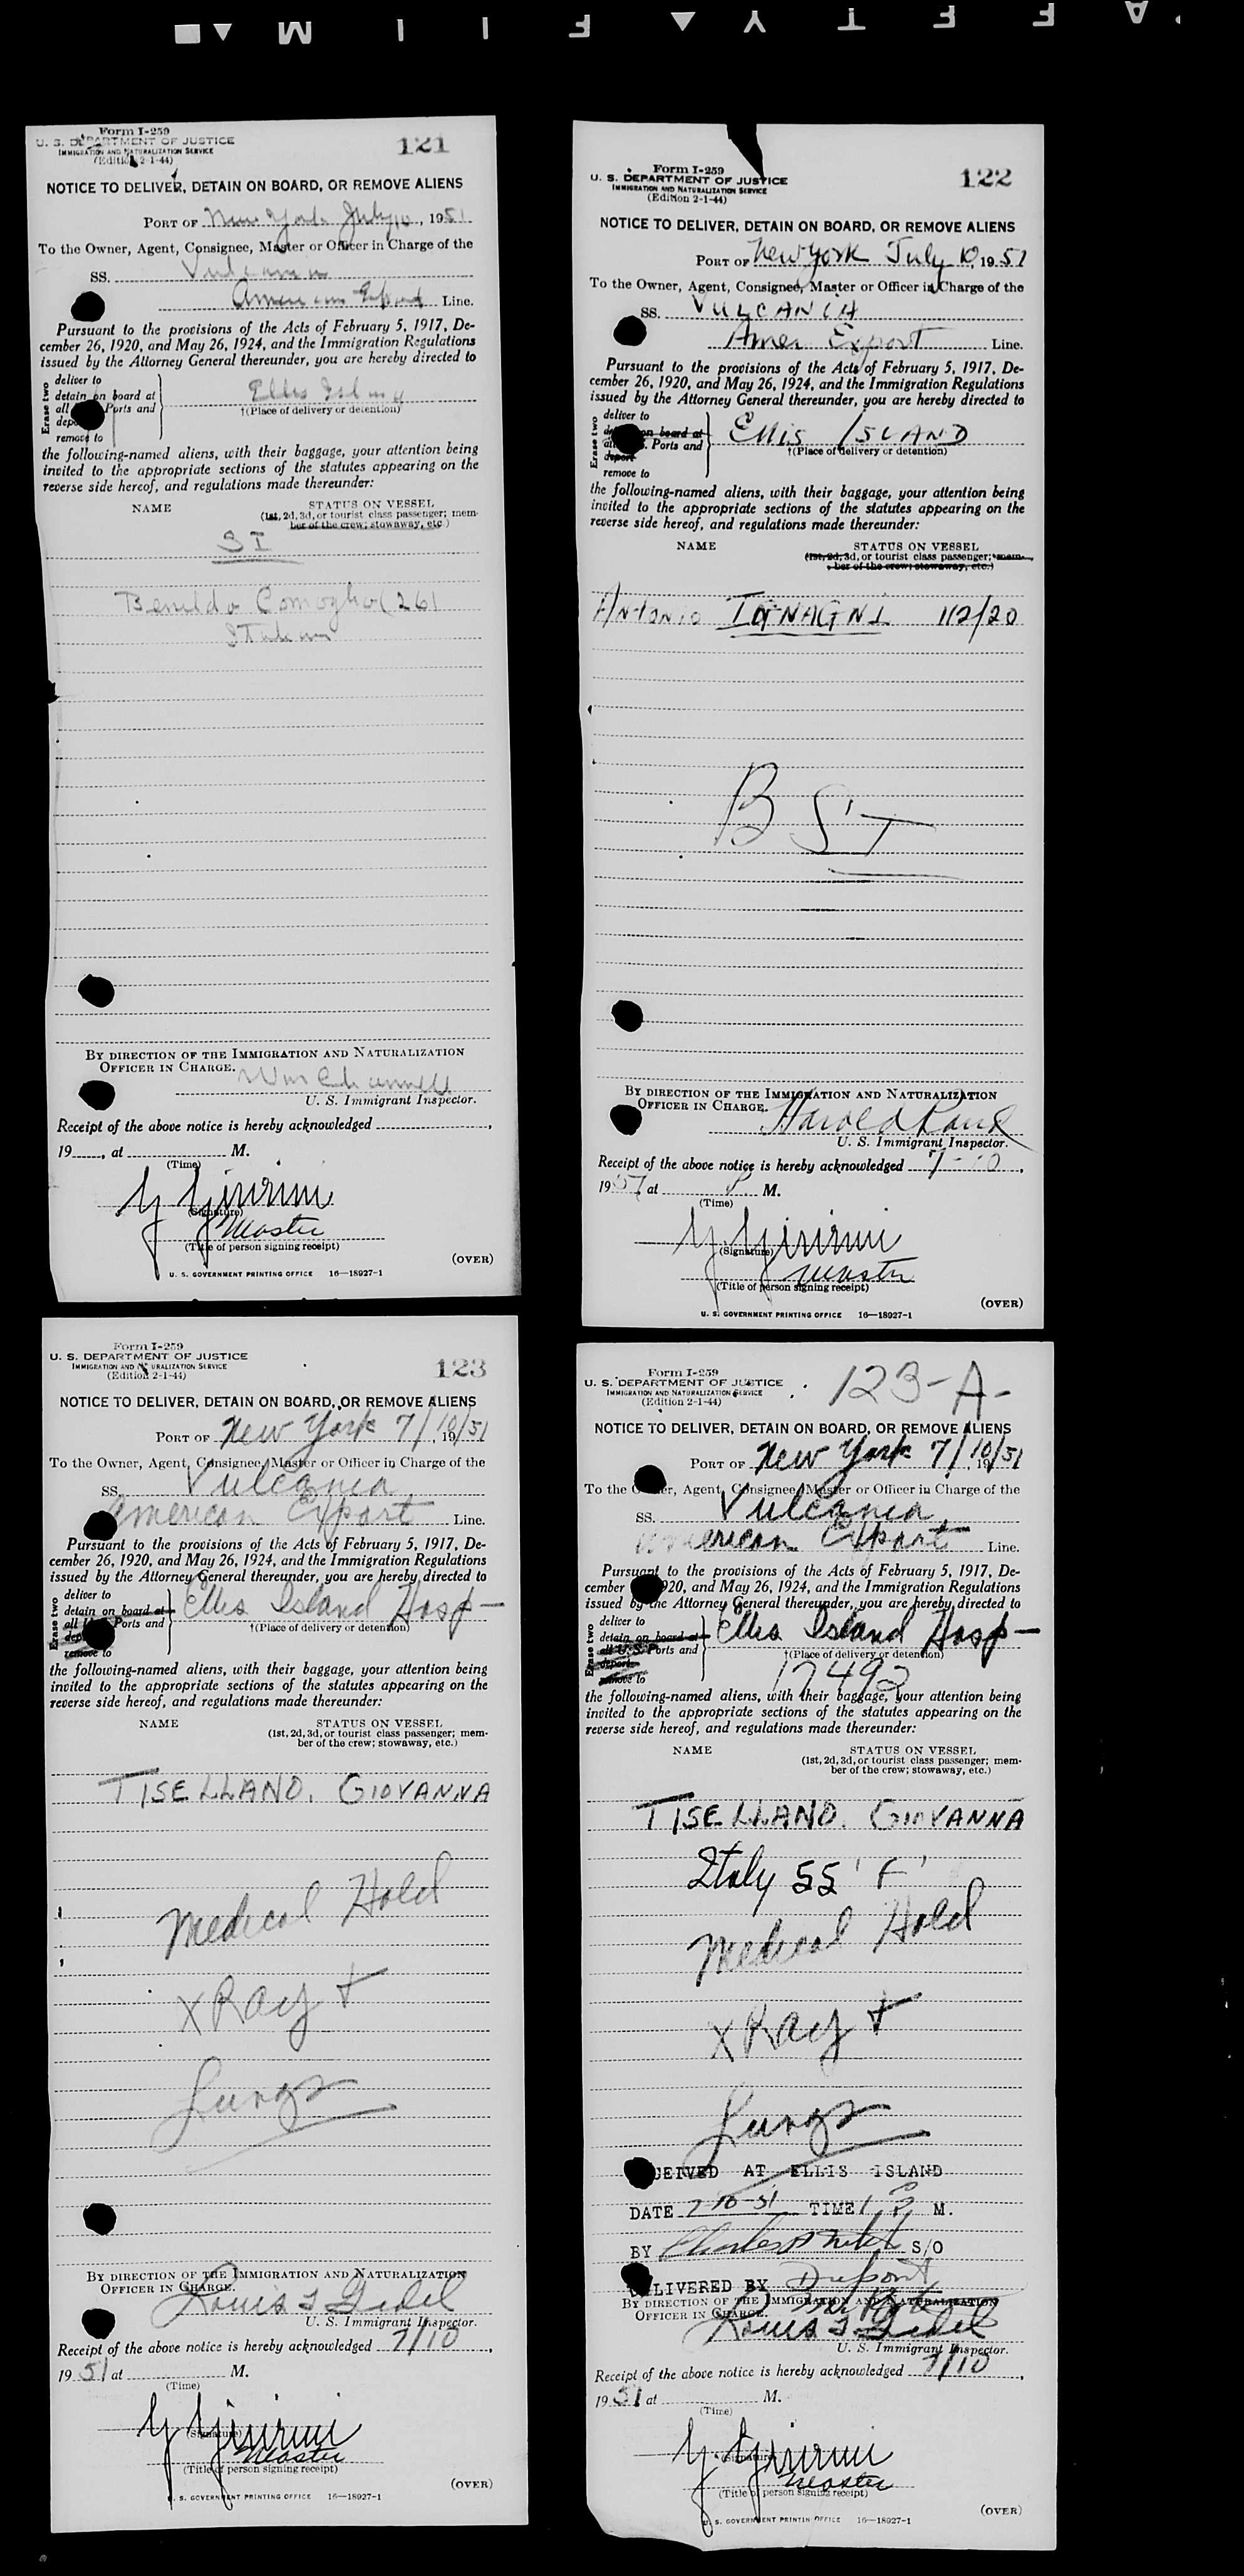 Form I-259
U. S. DEPARTMENT OF JUSTICE
IMMIGRATION AND NATURALIZATION SERVICE
(Edition 2-1-44)
121
NOTICE TO DELIVER, DETAIN ON BOARD, OR REMOVE ALIENS
PORT OF New York July 10, 1951
To the Owner, Agent, Consignee, Master or Officer in Charge of the
SS. Vulcania
American Export Line.
Pursuant to the provisions of the Acts of February 5, 1917, De-
cember 26, 1920, and May 26, 1924, and the Immigration Regulations
issued by the Attorney General thereunder, you are hereby directed to
Erase two
deliver to
detain on board at
all Ports and
remove to
Ellis Island
†(Place of delivery or detention)
the following-named aliens, with their baggage, your attention being
invited to the appropriate sections of the statutes appearing on the
reverse side hereof, and regulations made thereunder:
NAME STATUS ON VESSEL
(1st, 2d, 3d, or tourist class passenger; mem-
ber of the crew; stowaway, etc.)
SI
Comoglio (26)
Italian
BY DIRECTION OF THE IMMIGRATION AND NATURALIZATION
OFFICER IN CHARGE.
U. S. Immigrant Inspector.
Receipt of the above notice is hereby acknowledged
19 , at M.
(Time)
(Signature)
Master
(Title of person signing receipt)
(OVER)
U. S. GOVERNMENT PRINTING OFFICE 16—18927-1
Form I-259
U. S. DEPARTMENT OF JUSTICE
IMMIGRATION AND NATURALIZATION SERVICE
(Edition 2-1-44)
122
NOTICE TO DELIVER, DETAIN ON BOARD, OR REMOVE ALIENS
PORT OF New York July 10, 1951
To the Owner, Agent, Consignee, Master or Officer in Charge of the
SS. VULCANIA
Amer Export Line.
Pursuant to the provisions of the Acts of February 5, 1917, De-
cember 26, 1920, and May 26, 1924, and the Immigration Regulations
issued by the Attorney General thereunder, you are hereby directed to
Erase two
deliver to
on board at
Ports and
deport
remove to
Ellis ISLAND
†(Place of delivery or detention)
the following-named aliens, with their baggage, your attention being
invited to the appropriate sections of the statutes appearing on the
reverse side hereof, and regulations made thereunder:
NAME STATUS ON VESSEL
(1st, 2d, 3d, or tourist class passenger; mem-
ber of the crew; stowaway, etc.)
Antonio 112/20
B S I
BY DIRECTION OF THE IMMIGRATION AND NATURALIZATION
OFFICER IN CHARGE.
Harold
U. S. Immigrant Inspector.
Receipt of the above notice is hereby acknowledged 7-10,
1951 at P M.
(Time)
(Signature)
Master
(Title of person signing receipt)
(OVER)
U. S. GOVERNMENT PRINTING OFFICE 16—18927-1
Form I-259
U. S. DEPARTMENT OF JUSTICE
IMMIGRATION AND NATURALIZATION SERVICE
(Edition 2-1-44)
123
NOTICE TO DELIVER, DETAIN ON BOARD, OR REMOVE ALIENS
PORT OF New York 7/10/51, 19
To the Owner, Agent, Consignee, Master or Officer in Charge of the
SS. Vulcania
American Export Line.
Pursuant to the provisions of the Acts of February 5, 1917, De-
cember 26, 1920, and May 26, 1924, and the Immigration Regulations
issued by the Attorney General thereunder, you are hereby directed to
Erase two
deliver to
detain on board at
all Ports and
remove to
Ellis Island Hosp—
†(Place of delivery or detention)
the following-named aliens, with their baggage, your attention being
invited to the appropriate sections of the statutes appearing on the
reverse side hereof, and regulations made thereunder:
NAME STATUS ON VESSEL
(1st, 2d, 3d, or tourist class passenger; mem-
ber of the crew; stowaway, etc.)
TISELLANO. GIOVANNA
Medical Hold
X Ray +
Lungs
BY DIRECTION OF THE IMMIGRATION AND NATURALIZATION
OFFICER IN CHARGE.
Louis
U. S. Immigrant Inspector.
Receipt of the above notice is hereby acknowledged 7/10,
1951 at M.
(Time)
(Signature)
Master
(Title of person signing receipt)
(OVER)
U. S. GOVERNMENT PRINTING OFFICE 16—18927-1
Form I-259
U. S. DEPARTMENT OF JUSTICE
IMMIGRATION AND NATURALIZATION SERVICE
(Edition 2-1-44)
123-A-
NOTICE TO DELIVER, DETAIN ON BOARD, OR REMOVE ALIENS
PORT OF New York 7/10/51, 19
To the Owner, Agent, Consignee, Master or Officer in Charge of the
SS. Vulcania
American Export Line.
Pursuant to the provisions of the Acts of February 5, 1917, De-
cember 26, 1920, and May 26, 1924, and the Immigration Regulations
issued by the Attorney General thereunder, you are hereby directed to
Erase two
deliver to
detain on board at
all U. S. Ports and
deport
remove to
Ellis Island Hosp—
†(Place of delivery or detention)
17492
the following-named aliens, with their baggage, your attention being
invited to the appropriate sections of the statutes appearing on the
reverse side hereof, and regulations made thereunder:
NAME STATUS ON VESSEL
(1st, 2d, 3d, or tourist class passenger; mem-
ber of the crew; stowaway, etc.)
TISELLANO. GIOVANNA
Italy 55 'F'
Medical Hold
X Ray +
Lungs
RECEIVED AT ELLIS ISLAND
DATE 7-10-51 TIME M.
BY Charles S/O
DELIVERED BY Dupont
BY DIRECTION OF THE IMMIGRATION AND NATURALIZATION
OFFICER IN CHARGE.
Louis
U. S. Immigrant Inspector.
Receipt of the above notice is hereby acknowledged 7/10,
1951 at M.
(Time)
(Signature)
Master
(Title of person signing receipt)
(OVER)
U. S. GOVERNMENT PRINTING OFFICE 16—18927-1